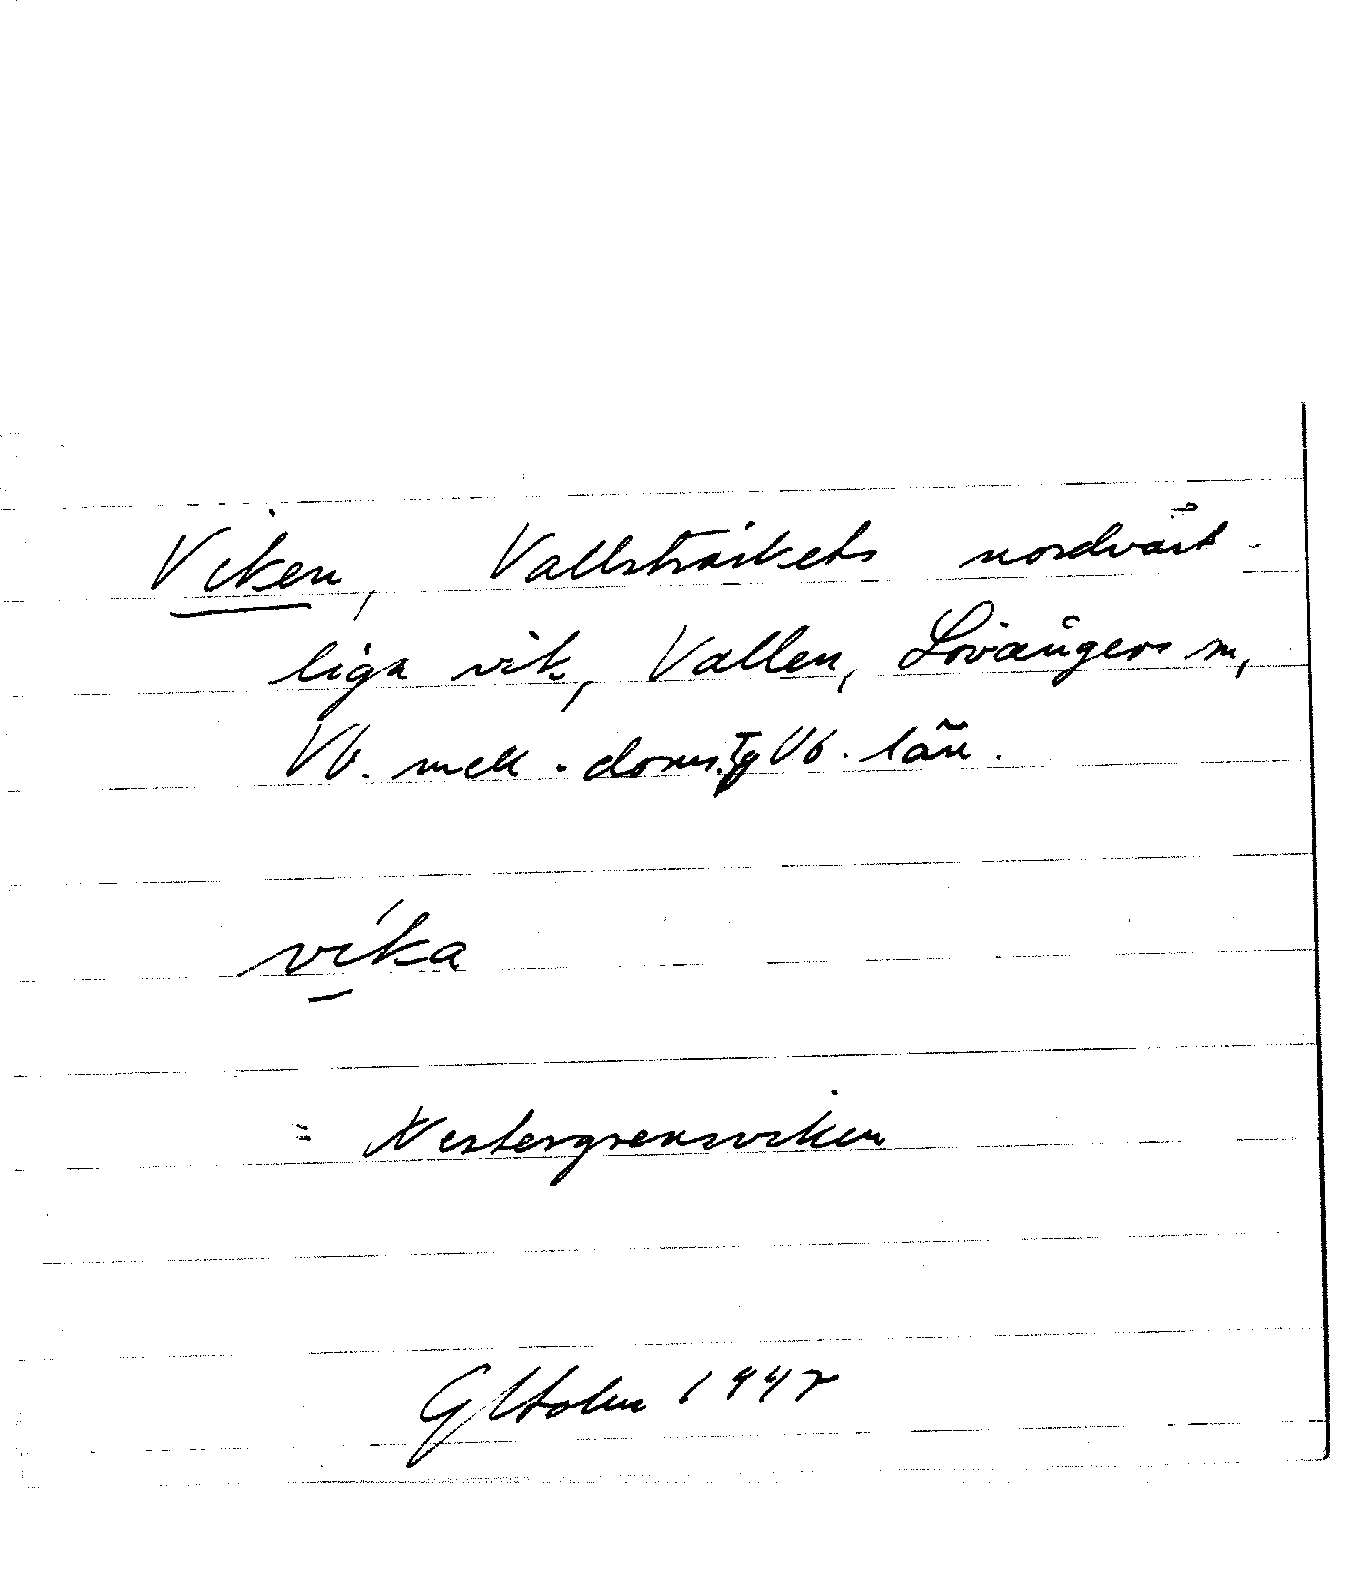 Viken, Vallsträskets nordväst-
liga vik, Vallen, Lövångers sn,
Vb. mell. doms. Vb. län.
víka
= Nestergrensviken
GHolm 1947